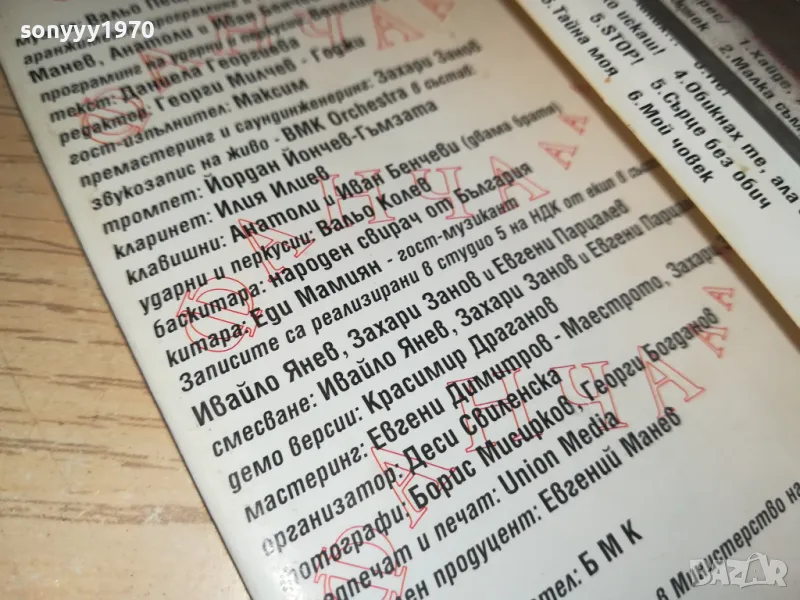 sonyyy1970
Манев, Анатоли и Иван Бенчеви
текст: Даниела Георгиева
редактор: Георги Милчев - Годжи
гост-изпълнител: Максим
премастеринг и саундинженеринг: Захари Занов
звукозапис на живо - BMK Orchestra в състав:
тромпет: Йордан Йончев-Гъмзата
кларинет: Илия Илиев
клавишни: Анатоли и Иван Бенчеви (двама братя)
ударни и перкусии: Вальо Колев
баскитара: народен свирач от България
китара: Еди Мамиян - гост-музикант
Записите са реализирани в студио 5 на НДК от екип в състав
Ивайло Янев, Захари Занов и Евгени Парцалев
смесване: Ивайло Янев, Захари Занов и Евгени
демо версии: Красимир Драганов
мастеринг: Евгени Димитров - Маестрото, Захари
организатор: Деси Свиленска
фотографи: Борис Мисирков, Георги Богданов
предпечат и печат: Union Media
продуцент: Евгений Манев
БМК
в Министерство на
ФАНЧА
6. Тайна моя
5. STOP!
1. Хайде,
2. Малка съм
4. Обикнах те, ала
5. Сърце без обич
6. Мой човек
BAZAR